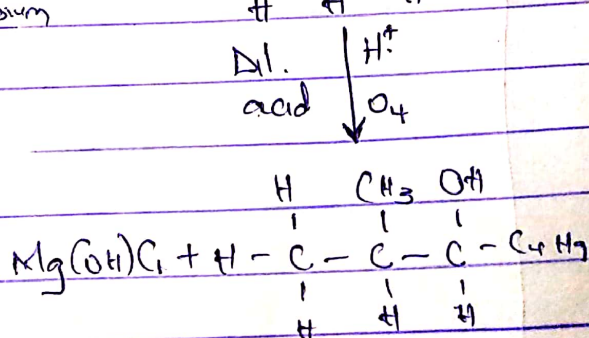 H H
Dil. H⁺
acid O4
H CH3 OH
Mg(OH)Cl + H - C - C - C - C4H9
H H H